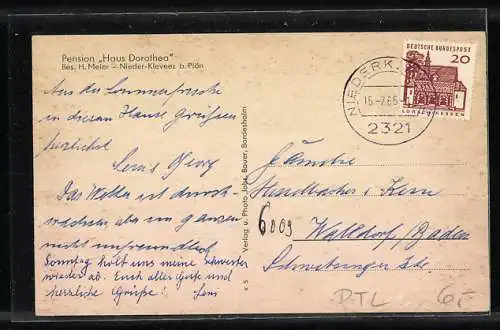 Pension „Haus Dorothea"
Bes. H. Meier – Nieder-Kleveez b. Plön
Aus der Sommerfrische
in diesem Hause grüßen
herzlichst
Leni & Georg
Das Wetter ist durch-
wachsen, aber im ganzen
nicht unfreundlich
Sonntag holt uns meine Schwester
wieder ab. Euch alles Gute und
herzliche Grüße! Leni
Verlag u. Photo Jobs. Bauer, Bordesholm
x 5
DEUTSCHE BUNDESPOST
20
LORSCH/HESSEN
NIEDERK
15.-7.66
2321
Familie
6909
Walldorf/Baden
Schwetzinger Str.
PTL
6,-